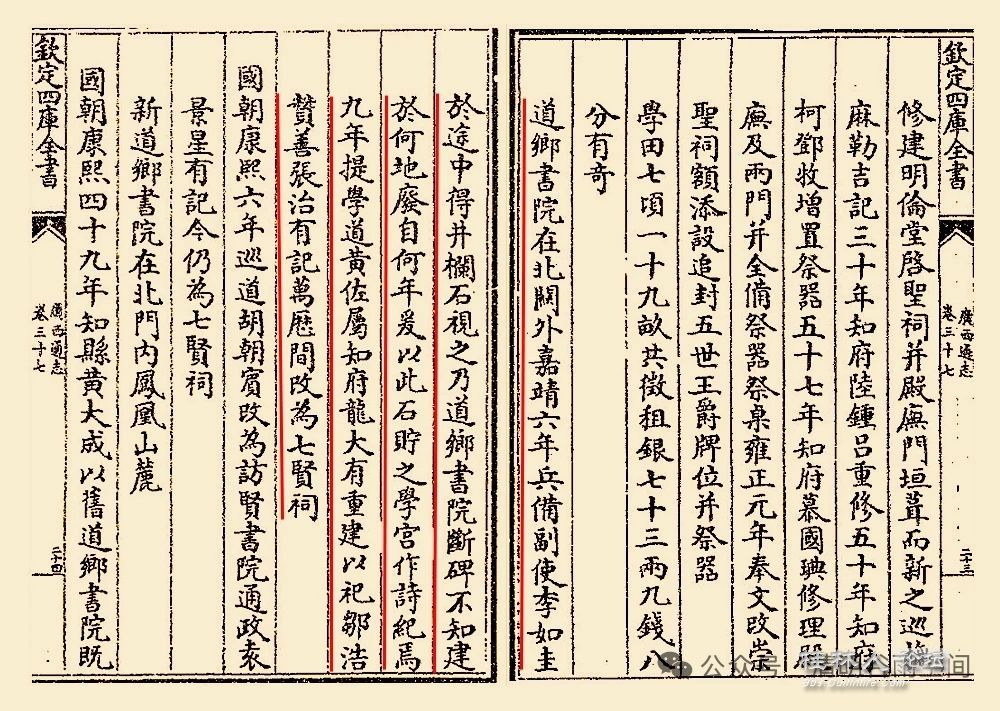 欽定四庫全書
廣西通志
卷三十七
二十三
修建明倫堂啓聖祠并殿廡門垣葺而新之巡撫
麻勒吉記三十年知府陸鍾吕重修五十年知府
柯鄧枚增置祭器五十七年知府慕國琠修理殿
廡及兩門并全備祭器祭桌雍正元年奉文改崇
聖祠額添設追封五世王爵牌位并祭器
學田七項一十九畝共徵租銀七十三兩九錢八
分有竒
道鄉書院在北闗外嘉靖六年兵備副使李如圭
於途中得井欄石視之乃道鄉書院斷碑不知建
於何地廢自何年爰以此石貯之學宫作詩紀焉
九年提學道黄佐屬知府龍大有重建以祀鄒浩
贊善張治有記萬歴間改為七賢祠
國朝康熙六年巡道胡朝賔改為訪賢書院通政袁
景星有記今仍為七賢祠
新道鄉書院在北門内鳳凰山麓
國朝康熙四十九年知縣黄大成以舊道鄉書院既
欽定四庫全書
廣西通志
卷三十七
二十四
公众号
空间